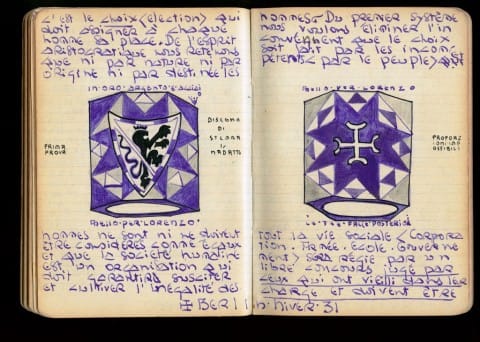 C'EST LE CHOIX (ELECTION) QUI
DOIT ASIGNER A CHAQUE
HOMME SA PLACE. DE L'ESPRIT
ARISTOCRATIQUE NOUS RETENONS
QUE NI PAR NATURE NI PAR
ORIGINE NI PAR DESTINÉE LES
IN·ORO·ARGENTO·E·
PRIMA
PROVA
DISEGNO
DI
SADATTO
ANELLO·PER·LORENZO·
HOMMES NE SONT NI NE DOIVENT
ÊTRE CONSIDÉRÉS COMME EGAUX
ET QUE LA SOCIÉTÉ HUMAINE
EST UN ORGANISATION QUI
DOIT GARANTIR SUSCITER
ET CULTIVER L'INEGALITÉ DES
HOMMES. DU PREMIER SYSTÈME
NOUS VOULONS ÉLIMINER L'IN
CONVENIENT QUE LE CHOIX
SOIT FAIT PAR LES INCOM
PÉTENTS, PAR LE PEUPLE)
ANELLO·PER·LORENZO
PROPOR
ZIONI IMP
OSSIBILI
POSTERIOR
TOUT LA VIE SOCIALE (CORPORA
TION. ARMÉE. ECOLE. GOUVERNE
MENT) SERA RÉGIE PAR UN
LIBRE CONCOURS JUGÉ PAR
CEUX QUI ONT VIEILLI DANS LEUR
CHARGE ET DOIVENT ÊTRE
BERLIN. HIVER. 31